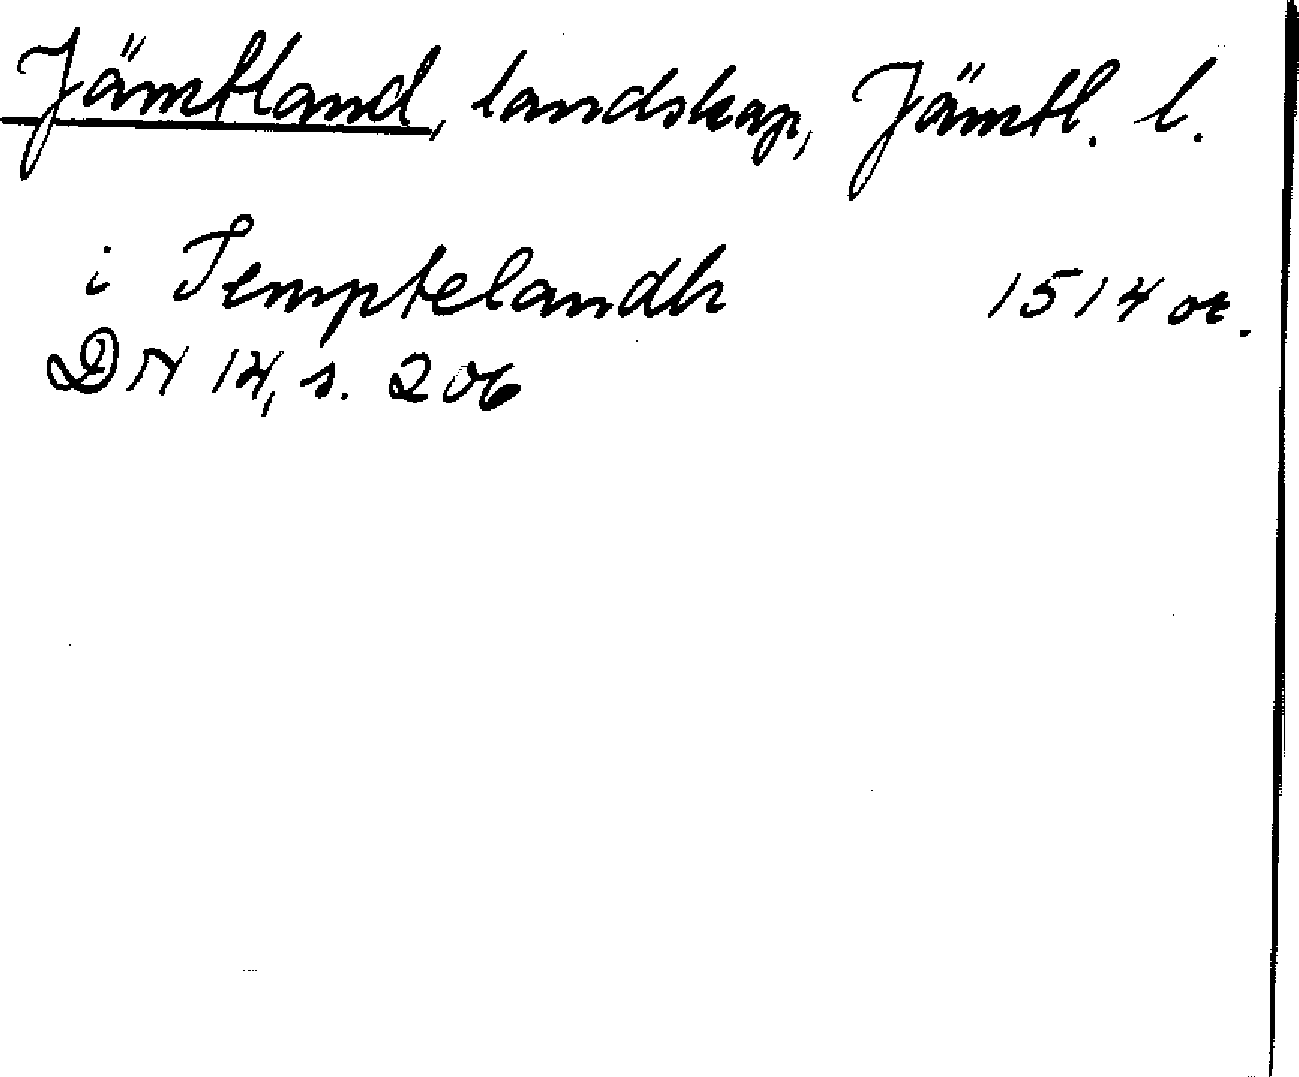 Jämtland, landskap, Jämtl. l.
i Jemptelandh 1514 or.
DN 14, s. 206